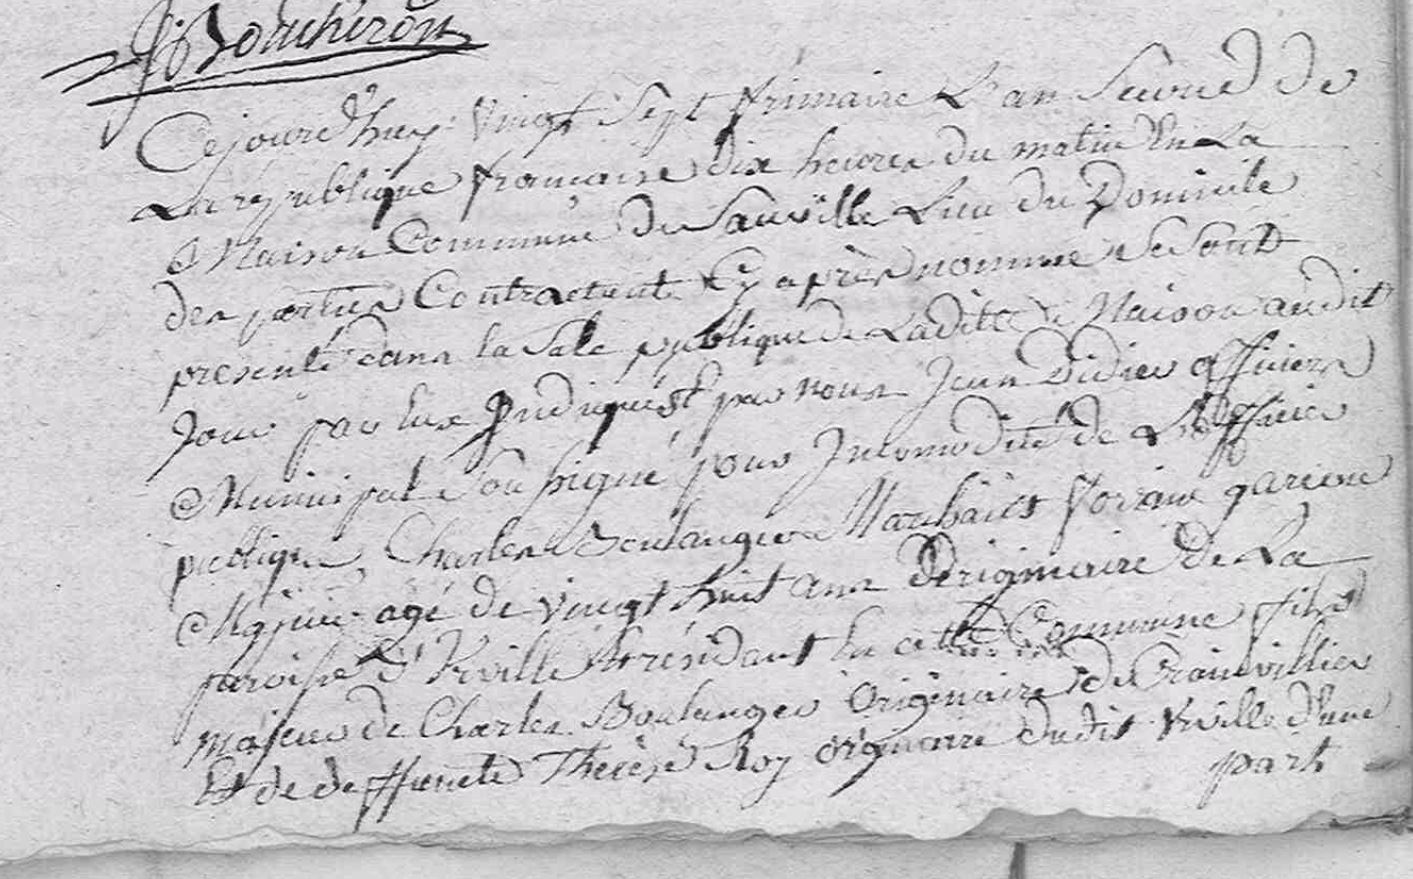 J Boucheron
Cejourd'huy vingt sept frimaire L'an Second De
La republique francaise dix heures du matin En La
Maison Commune De Sauville Lieu du Domicile
des parties Contractante Cy après nommé se Sont
presenté dans la Sale publique de Ladite Maison audit
Jour par Eux Indiqués par nous Jean Didier officiers
Municipal Soussigné pour Incomodité de L'officier
publique, Charles Boulangier Marchait garcons
Majeur agé de vingt huit ans Dérigineire De La
paroisse d'Urville Et résidant En cette Commune fils
majeur de Charles Boulanger Originaire de Crainvillier
Et de deffuncte Therèse Roy origineire dudit Urville d'une
part